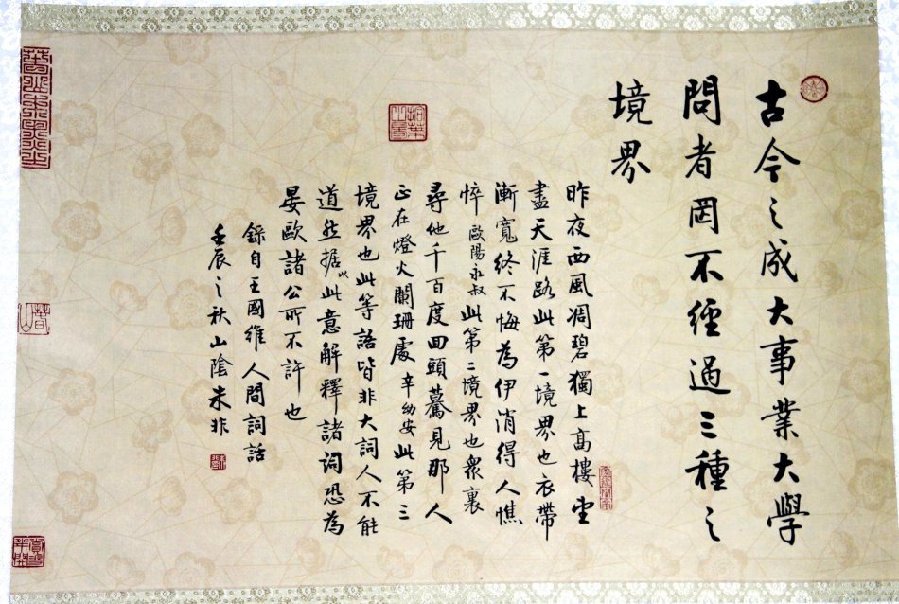 古今之成大事業大學
問者罔不經過三種之
境界
昨夜西風凋碧獨上高樓望
盡天涯路此第一境界也衣帶
漸寬終不悔為伊消得人憔
悴歐陽永叔此第二境界也衆裏
尋他千百度回頭驀見那人
正在燈火闌珊處辛幼安此第三
境界也此等語皆非大詞人不能
道然據以此意解釋諸詞恐為
晏歐諸公所不許也
錄自王國維人間詞話
壬辰之秋山陰朱非